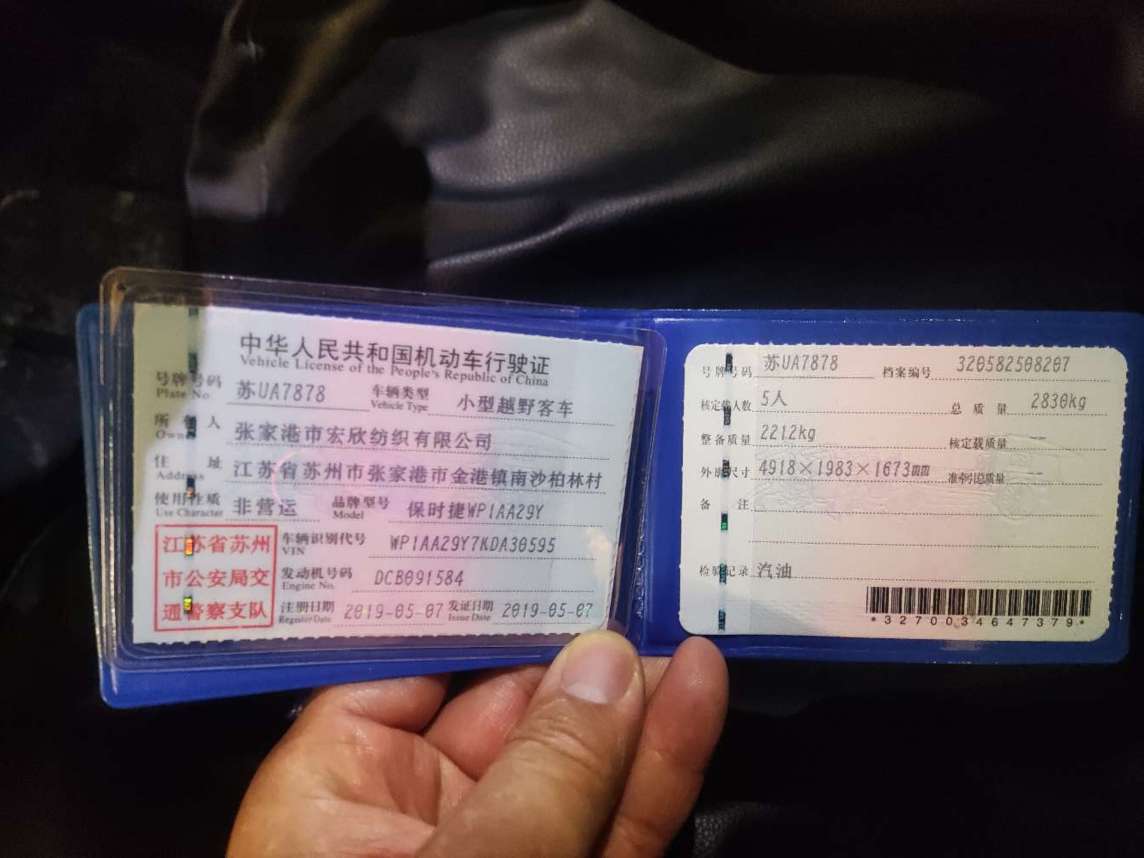 中华人民共和国机动车行驶证
Vehicle License of the People's Republic of China
号牌号码 苏UA7878 车辆类型 小型越野客车
Plate No. Vehicle Type
所有人 张家港市宏欣纺织有限公司
Owner
住址 江苏省苏州市张家港市金港镇南沙柏林村
Address
使用性质 非营运 品牌型号 保时捷WP1AA29Y
Use Character Model
江苏省苏州
市公安局交
通警察支队
车辆识别代号 WP1AA29Y7KDA30595
VIN
发动机号码 DCB091584
Engine No.
注册日期 2019-05-07 发证日期 2019-05-07
Register Date Issue Date
号牌号码 苏UA7878 档案编号 320582508207
核定载人数 5人 总质量 2830kg
整备质量 2212kg 核定载质量 --
外廓尺寸 4918×1983×1673mm 准牵引总质量 --
备注
检验记录 汽油
*3270034647379*